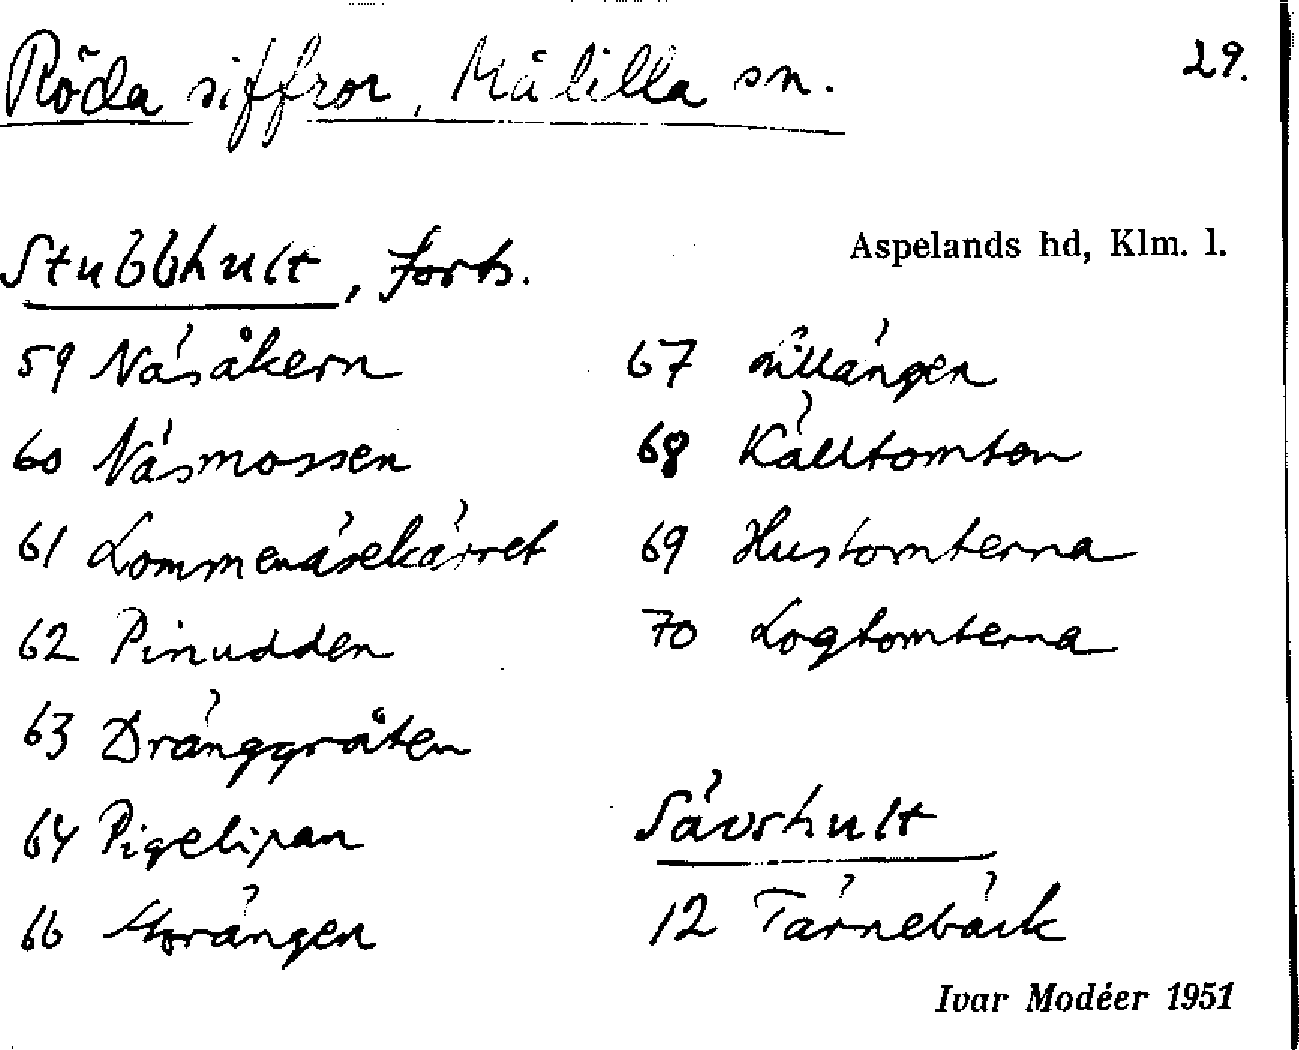 Röda siffror, Målilla sn.
29.
Aspelands hd, Klm. l.
Stubbhult, forts.
59 Näsåkern
60 Näsmossen
61 Lommenäsekärret
62 Pinudden
63 Dränggråten
64 Pigelipan
66 Storängen
67 Lillängen
68 Källtomten
69 Hustomterna
70 Logtomterna
Sävshult
12 Tärnebäck
Ivar Modéer 1951